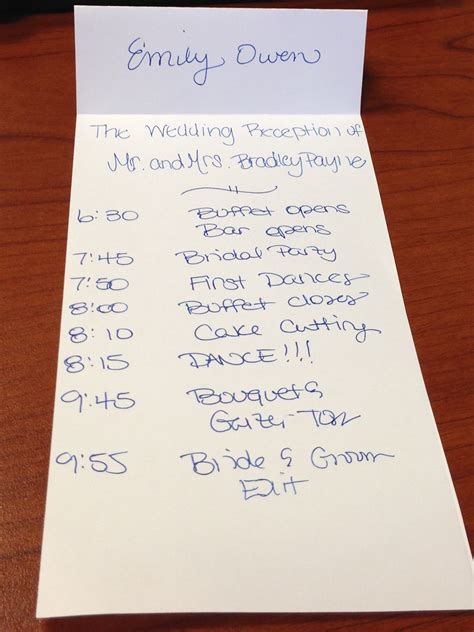 Emily Owen
The Wedding Reception of
Mr. and Mrs. Bradley Payne
6:30 Buffet opens
Bar opens
7:45 Bridal Party
7:50 First Dances
8:00 Buffet closes
8:10 Cake Cutting
8:15 DANCE!!!
9:45 Bouquet &
Garter-Toss
9:55 Bride & Groom
Exit